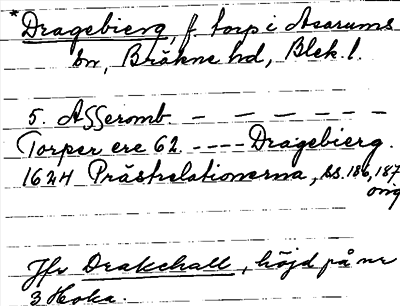 *Dragebierg, f. torp i Asarums
sn, Bräkne hd, Blek. l.
5. Asseromb. - - - - - -
Torper ere 62. ---- Dragebierg.
1624 Prästrelationerna, ss. 186, 187
orig
Jfr Drakehall, höjd på nr
3 Hoka.